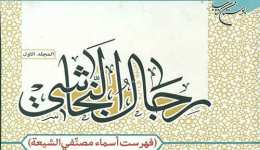 المجلد الأول
رجال النجاشي
(فهرست أسماء مصنّفي الشيعة)